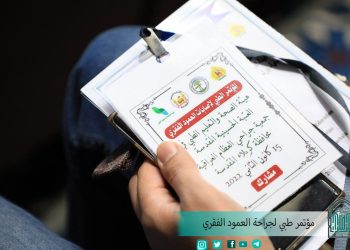 المؤتمر الطبي لإصابات العمود الفقري
هيئة الصحة والتعليم الطبي في
العتبة الحسينية المقدسة
جمعية جراحي العظام العراقية
محافظة كربلاء المقدسة
15 كانون الثاني 2022
مشارك
مؤتمر طبي لجراحة العمود الفقري